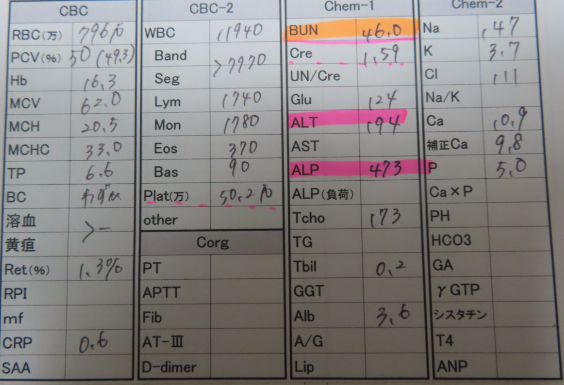 CBC
RBC(万) 796万
PCV(%) 50(49.3)
Hb 16.3
MCV 62.0
MCH 20.5
MCHC 33.0
TP 6.6
BC
溶血 >-
黄疸
Ret(%) 1.3%
RPI
mf
CRP 0.6
SAA
CBC-2
WBC 11940
Band
Seg >7970
Lym 1740
Mon 1780
Eos 370
Bas 90
Plat(万) 50.2万
other
Corg
PT
APTT
Fib
AT-III
D-dimer
Chem-1
BUN 46.0
Cre 1.59
UN/Cre
Glu 124
ALT 194
AST
ALP 473
ALP(負荷)
Tcho 173
TG
Tbil 0.2
GGT
Alb 3.6
A/G
Lip
Chem-2
Na 147
K 3.7
Cl 111
Na/K
Ca 10.9
補正Ca 9.8
P 5.0
Ca×P
PH
HCO3
GA
γGTP
シスタチン
T4
ANP